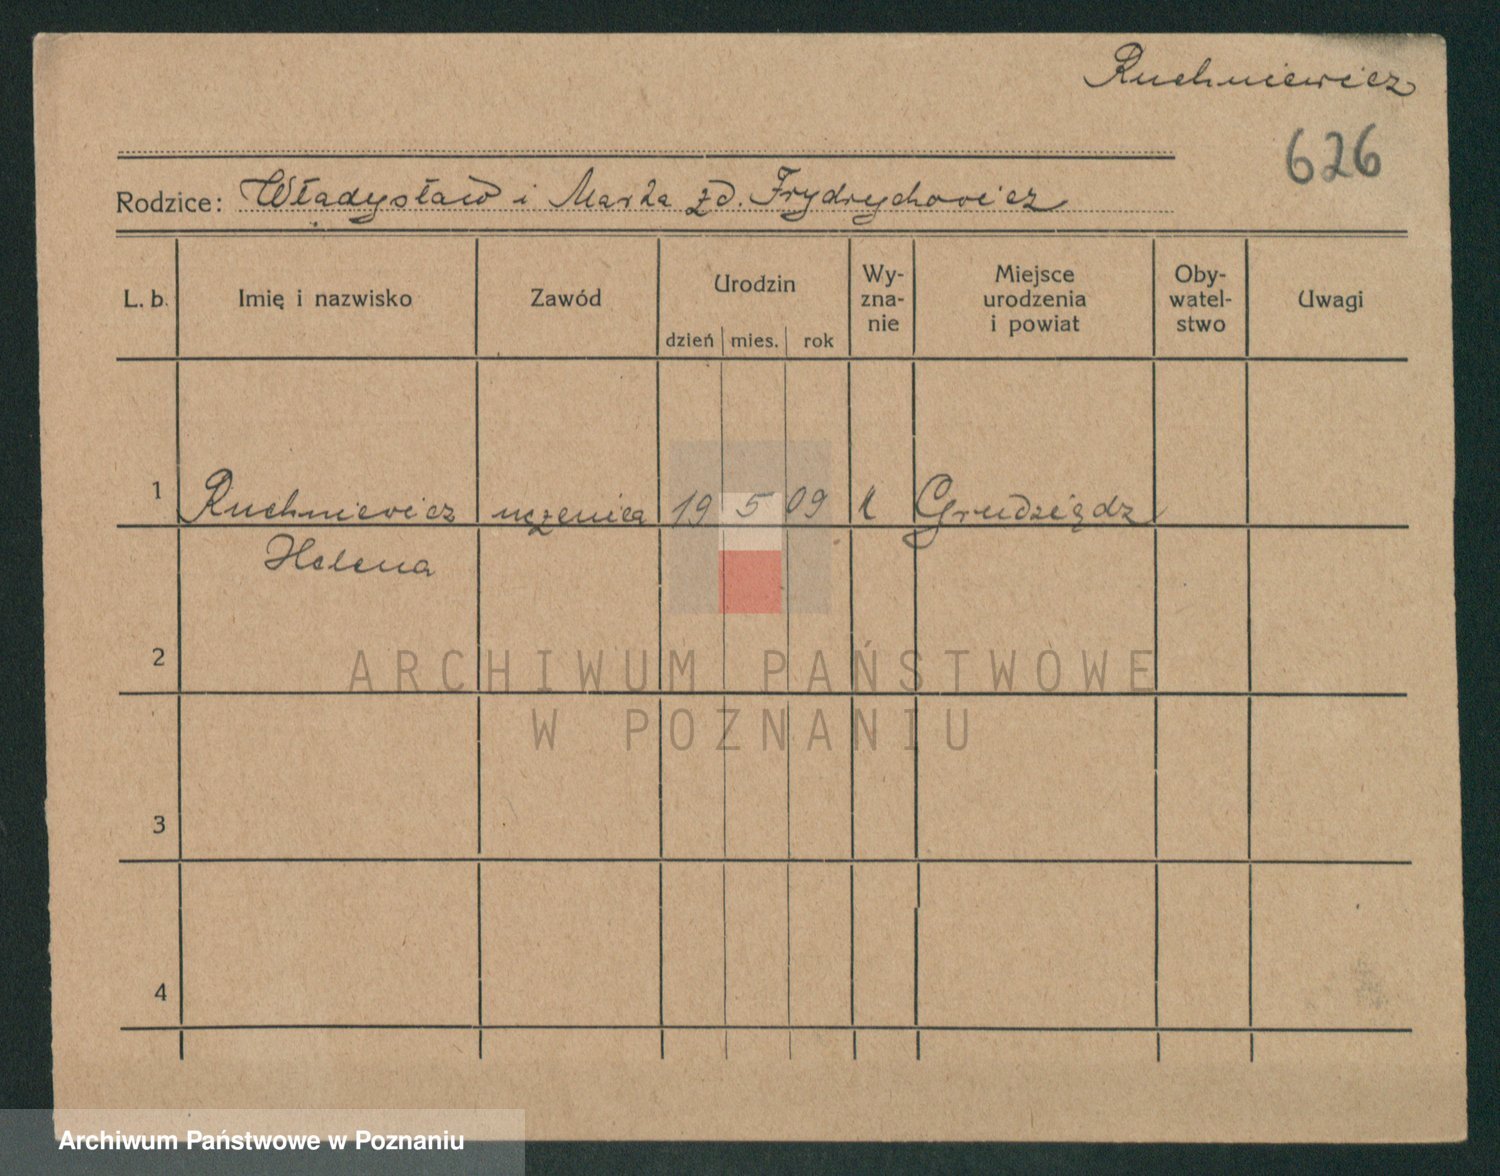 Ruchniewicz
626
Rodzice: Władysław i Marta zd. Frydrychowicz
L. b. Imię i nazwisko Zawód Urodzin dzień mies. rok Wy-zna-nie Miejsce urodzenia i powiat Oby-watel-stwo Uwagi
1 Ruchniewicz uczenica 19 5 09 k Grudziądz
Helena
2
ARCHIWUM PAŃSTWOWE
W POZNANIU
3
4
Archiwum Państwowe w Poznaniu